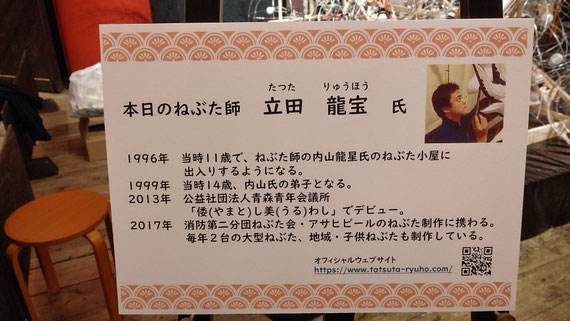 たつた りゅうほう
本日のねぶた師 立田 龍宝 氏
1996年 当時11歳で、ねぶた師の内山龍星氏のねぶた小屋に
出入りするようになる。
1999年 当時14歳、内山氏の弟子となる。
2013年 公益社団法人青森青年会議所
「倭(やまと)し美(うる)わし」でデビュー。
2017年 消防第二分団ねぶた会・アサヒビールのねぶた制作に携わる。
毎年２台の大型ねぶた、地域・子供ねぶたも制作している。
オフィシャルウェブサイト
https://www.tatsuta-ryuho.com/